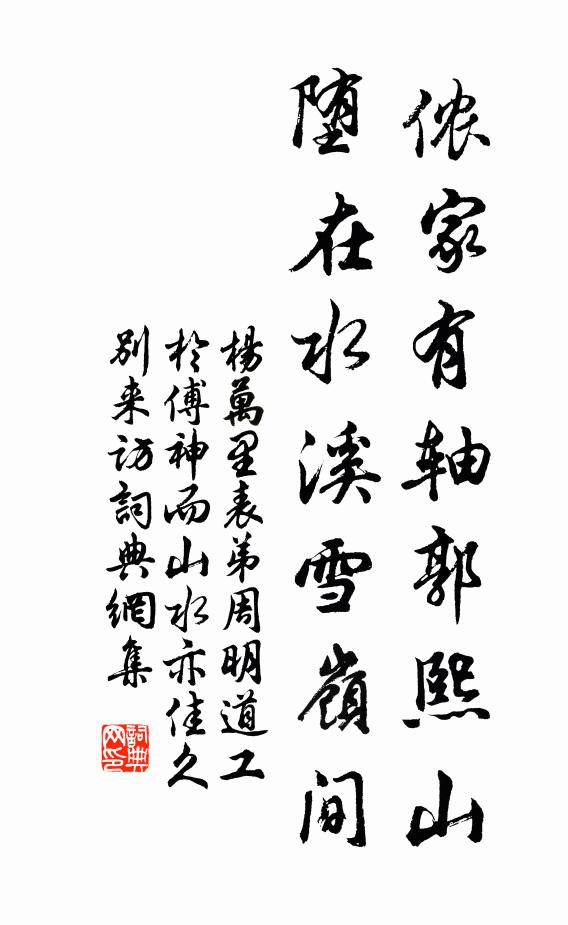 侬家有轴郭熙山
堕在水溪雪嶺间
楊萬里表弟周明道工
於傅神而山水亦佳久
别来访詞典網集
詞典網印